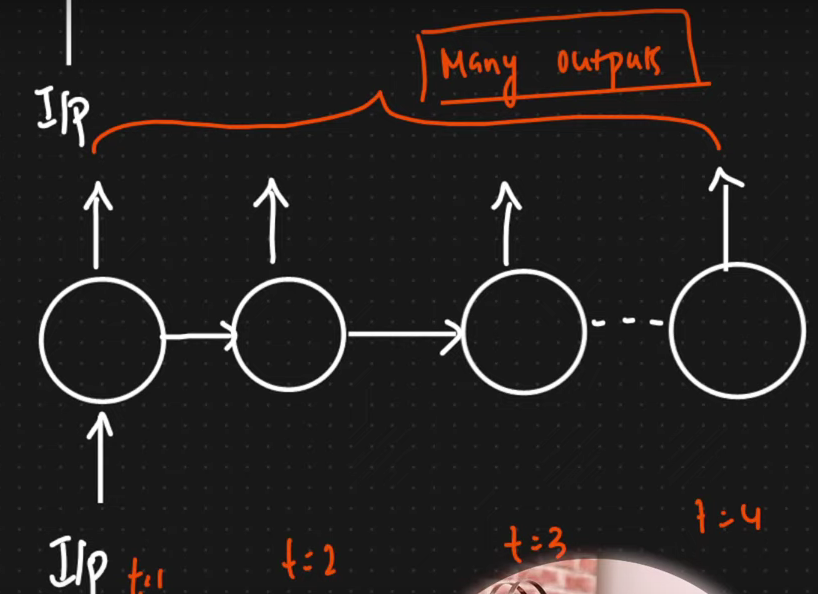 Many outputs
I/p
I/p
t=1
t=2
t=3
t=4